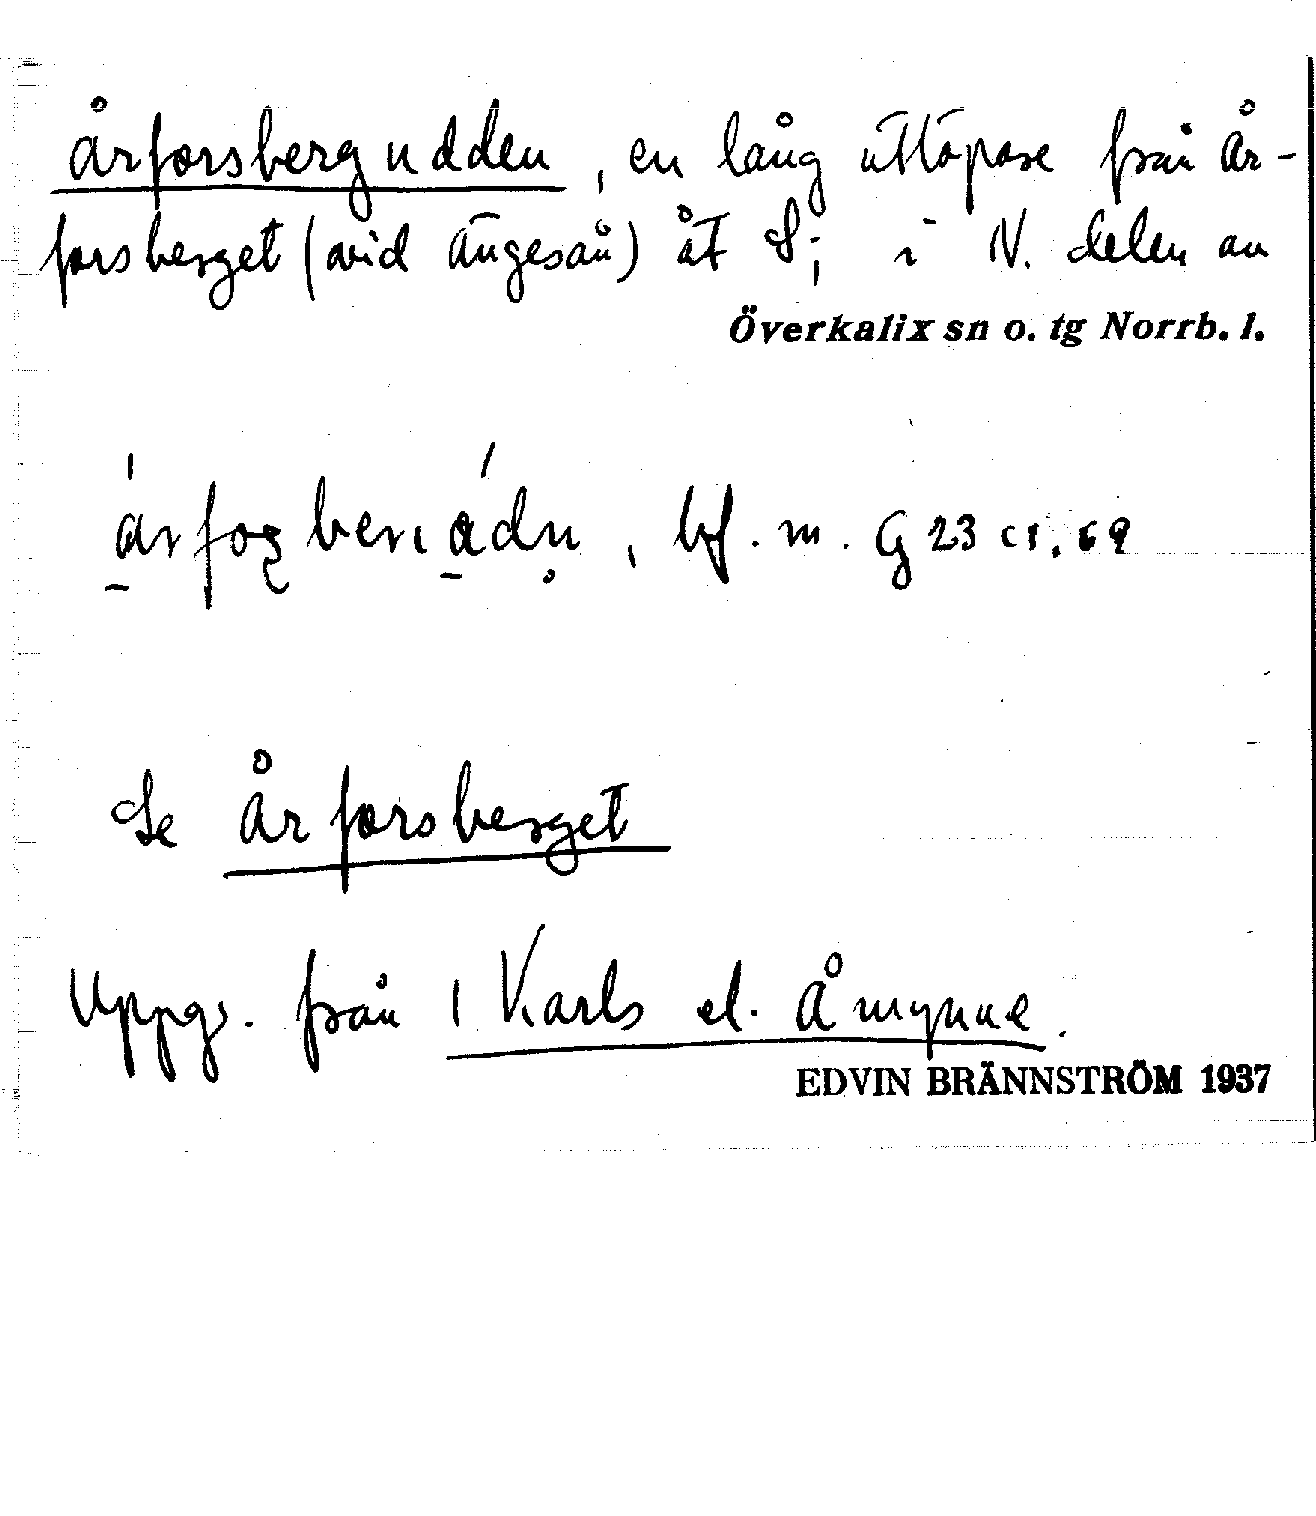 Årforsbergudden, en lång utlöpare från År-
forsberget (vid Ängesån) åt S; i N. delen av
Överkalix sn o. tg Norrb. l.
bf. m. G 23 c1. 69
Se Årforsberget
Uppg. från 1 Karls el. Åmynne.
EDVIN BRÄNNSTRÖM 1937